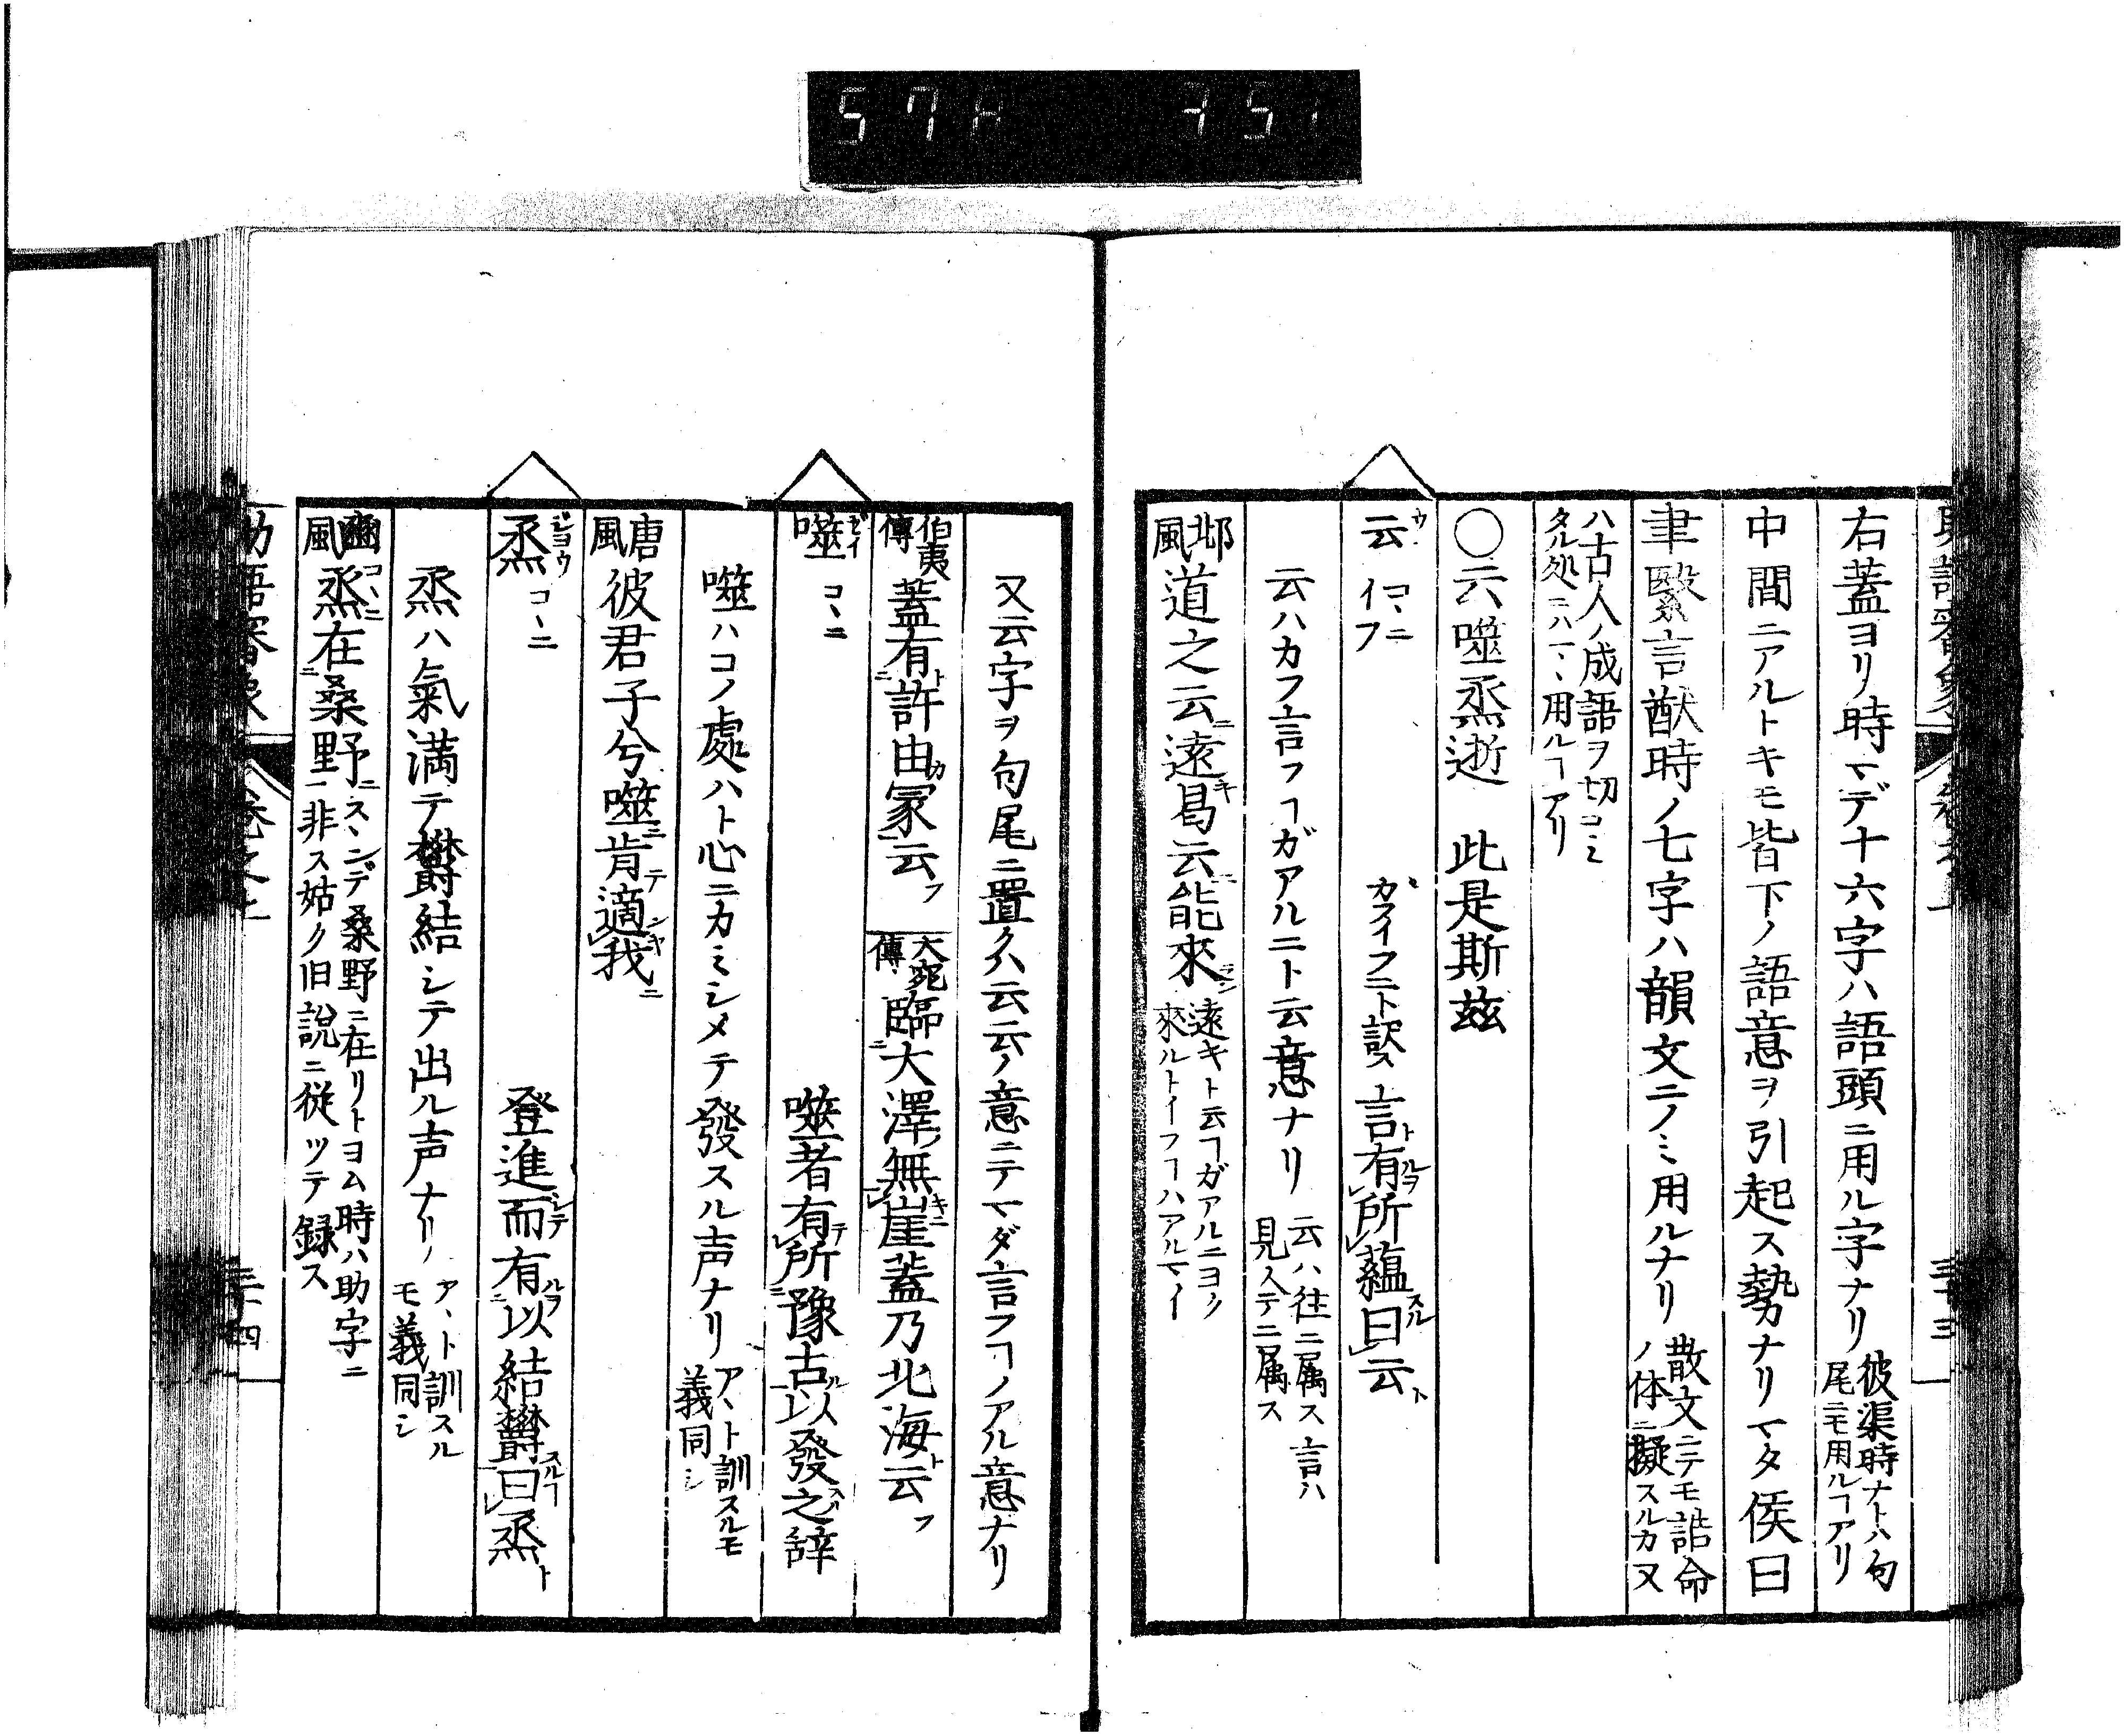 右蓋ヨリ時マデ十六字ハ語頭ニ用ル字ナリ彼渠時ナトハ句尾ニモ用ルヿアリ
中間ニアルトキモ皆下ノ語意ヲ引起ス勢ナリマタ侯曰
聿繄言猷時ノ七字ハ韻文ニノミ用ルナリ散文ニテモ誥命ノ体ニ擬スルカ又
ハ古人ノ成語ヲ切コミタル処ニハマヽ用ルヿアリ
〇云噬烝逝 此是斯茲
云 ウ コヽニ イフ カクイフニト訳ス 言有所蘊曰云
云ハカフ言フヿガアルニト云意ナリ云ハ往ニ属ス言ハ見人テニ属ス
邶風 道之云遠曷云能來 遠キト云ヿガアルニヨツ來ルトイフヿハアルマイ
又云字ヲ句尾ニ置クハ云云ノ意ニテマダ言フヿノアル意ナリ
伯夷傳 蓋有許由冢云 大宛傳 臨大澤無崖蓋乃北海云
噬 ゼイ コヽニ 噬者有所豫古以發之辞
噬ハコノ處ハト心ニカミシメテ發スル声ナリアヽト訓スルモ義同シ
唐風 彼君子兮噬肯適我
烝 ジヨウ コヽニ 登進而有以結欝曰烝
烝ハ氣満テ欝結シテ出ル声ナリアヽト訓スルモ義同シ
豳風 烝在桑野 スヽンデ桑野ニ在リトヨム時ハ助字ニ非ス姑ク旧説ニ從ツテ録ス
助語審象 巻之上 三十四